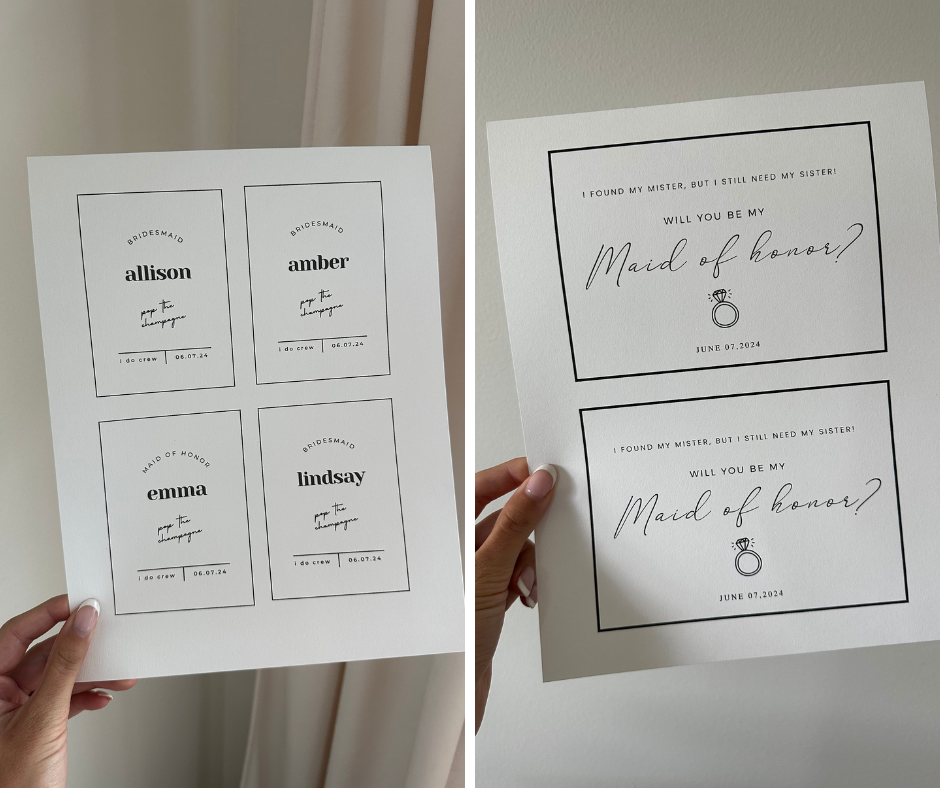 BRIDESMAID
allison
pop the
champagne
i do crew | 06.07.24
BRIDESMAID
amber
pop the
champagne
i do crew | 06.07.24
MAID OF HONOR
emma
pop the
champagne
i do crew | 06.07.24
BRIDESMAID
lindsay
pop the
champagne
i do crew | 06.07.24
I FOUND MY MISTER, BUT I STILL NEED MY SISTER!
WILL YOU BE MY
Maid of honor?
JUNE 07,2024
I FOUND MY MISTER, BUT I STILL NEED MY SISTER!
WILL YOU BE MY
Maid of honor?
JUNE 07,2024